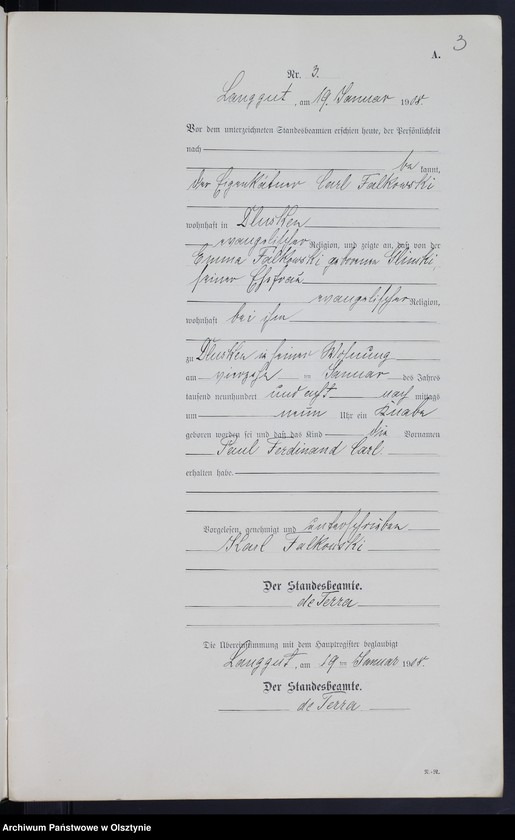 3
A.
Nr. 3.
Langgut, am 19. Januar 1908.
Vor dem unterzeichneten Standesbeamten erschien heute, der Persönlichkeit
nach
bekannt,
der Eigenkätner Carl Falkowski
wohnhaft in Dlusken
evangelischer Religion, und zeigte an, daß von der
Emma Falkowski geborenen Glinski,
seiner Ehefrau
evangelischer Religion,
wohnhaft bei ihm
zu Dlusken in seiner Wohnung
am vierzehn ten Januar des Jahres
tausend neunhundert und acht nach mittags
um neun Uhr ein Knabe
geboren worden sei und daß das Kind die Vornamen
Paul Ferdinand Carl
erhalten habe.
Vorgelesen, genehmigt und unterschrieben
Karl Falkowski
Der Standesbeamte.
de Terra
Die Übereinstimmung mit dem Hauptregister beglaubigt
Langgut, am 19 ten Januar 1908.
Der Standesbeamte.
de Terra
Archiwum Państwowe w Olsztynie